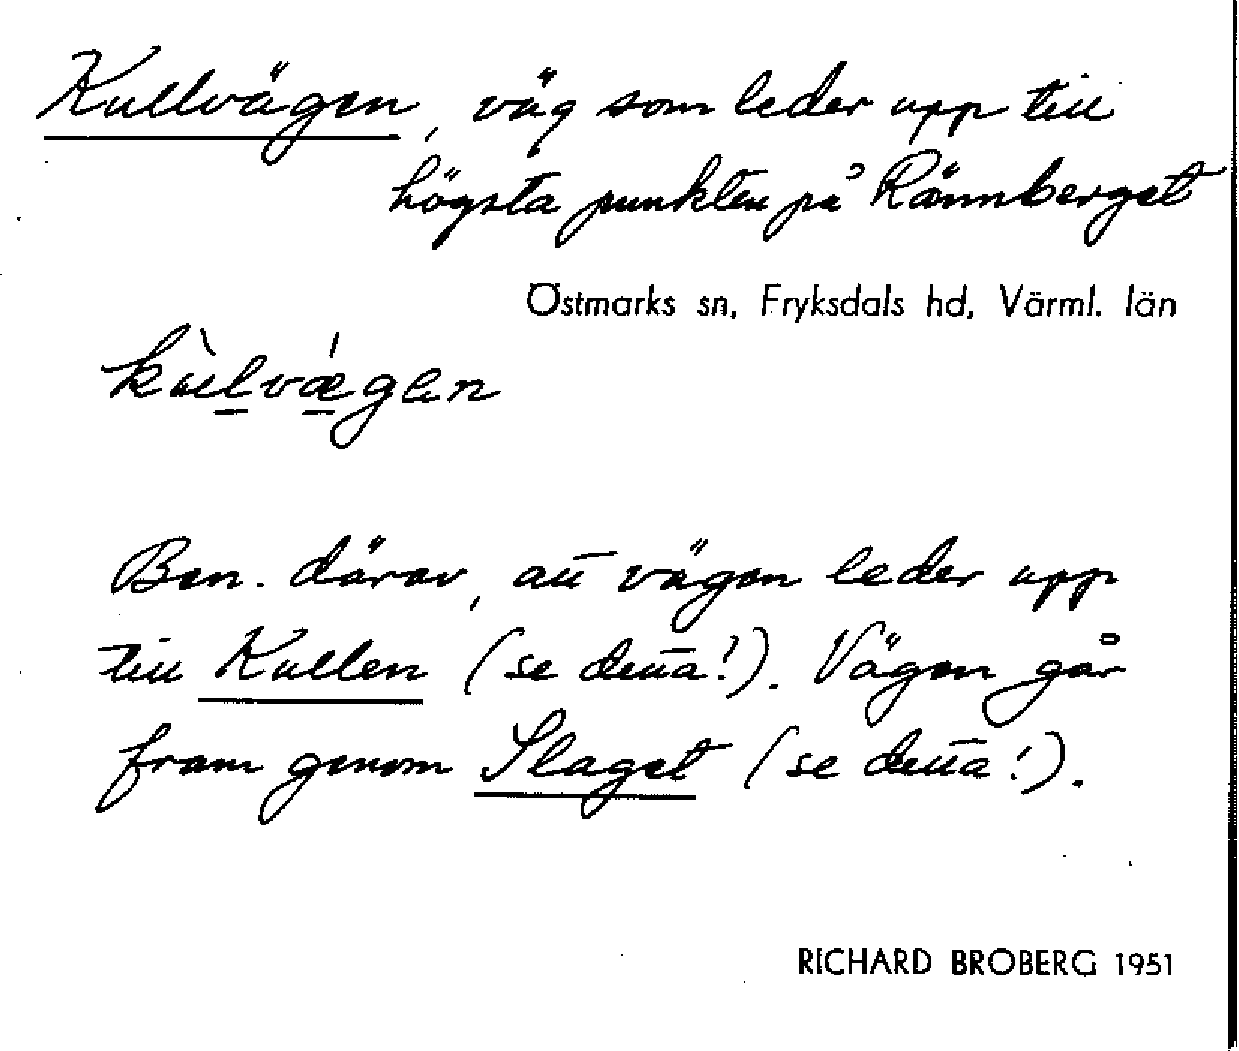 Kullvägen, väg som leder upp till
högsta punkten på Rännberget
Östmarks sn, Fryksdals hd, Värml. län
kùlvǽgen
Ben. därav, att vägen leder upp
till Kullen (se detta!). Vägen går
fram genom Slaget (se detta!).
RICHARD BROBERG 1951